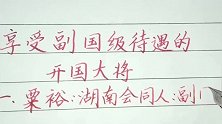 享受副国级待遇的
开国大将
一.粟裕:湖南会同人:副